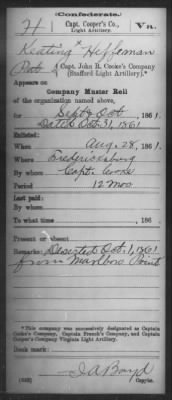 (Confederate.)
H Capt. Cooper's Co., Va.
Light Artillery.
Keating Heffleman
Pvt, Capt. John R. Cooke's Company
(Stafford Light Artillery).
Appears on
Company Muster Roll
of the organization named above,
for Sept & Oct 1861.
Dated Oct. 31, 1861
Enlisted:
When Aug. 28, 1861.
Where Fredericksburg
By whom Capt. Cooke
Period 12 mos
Last paid:
By whom
To what time , 186 .
Present or absent
Remarks: Deserted Oct. 1, 1861
from Marlboro Point
*This company was successively designated as Captain
Cooke's Company, Captain French's Company, and Captain
Cooper's Company Virginia Light Artillery.
Book mark:
J A Boyd
(642) Copyist.